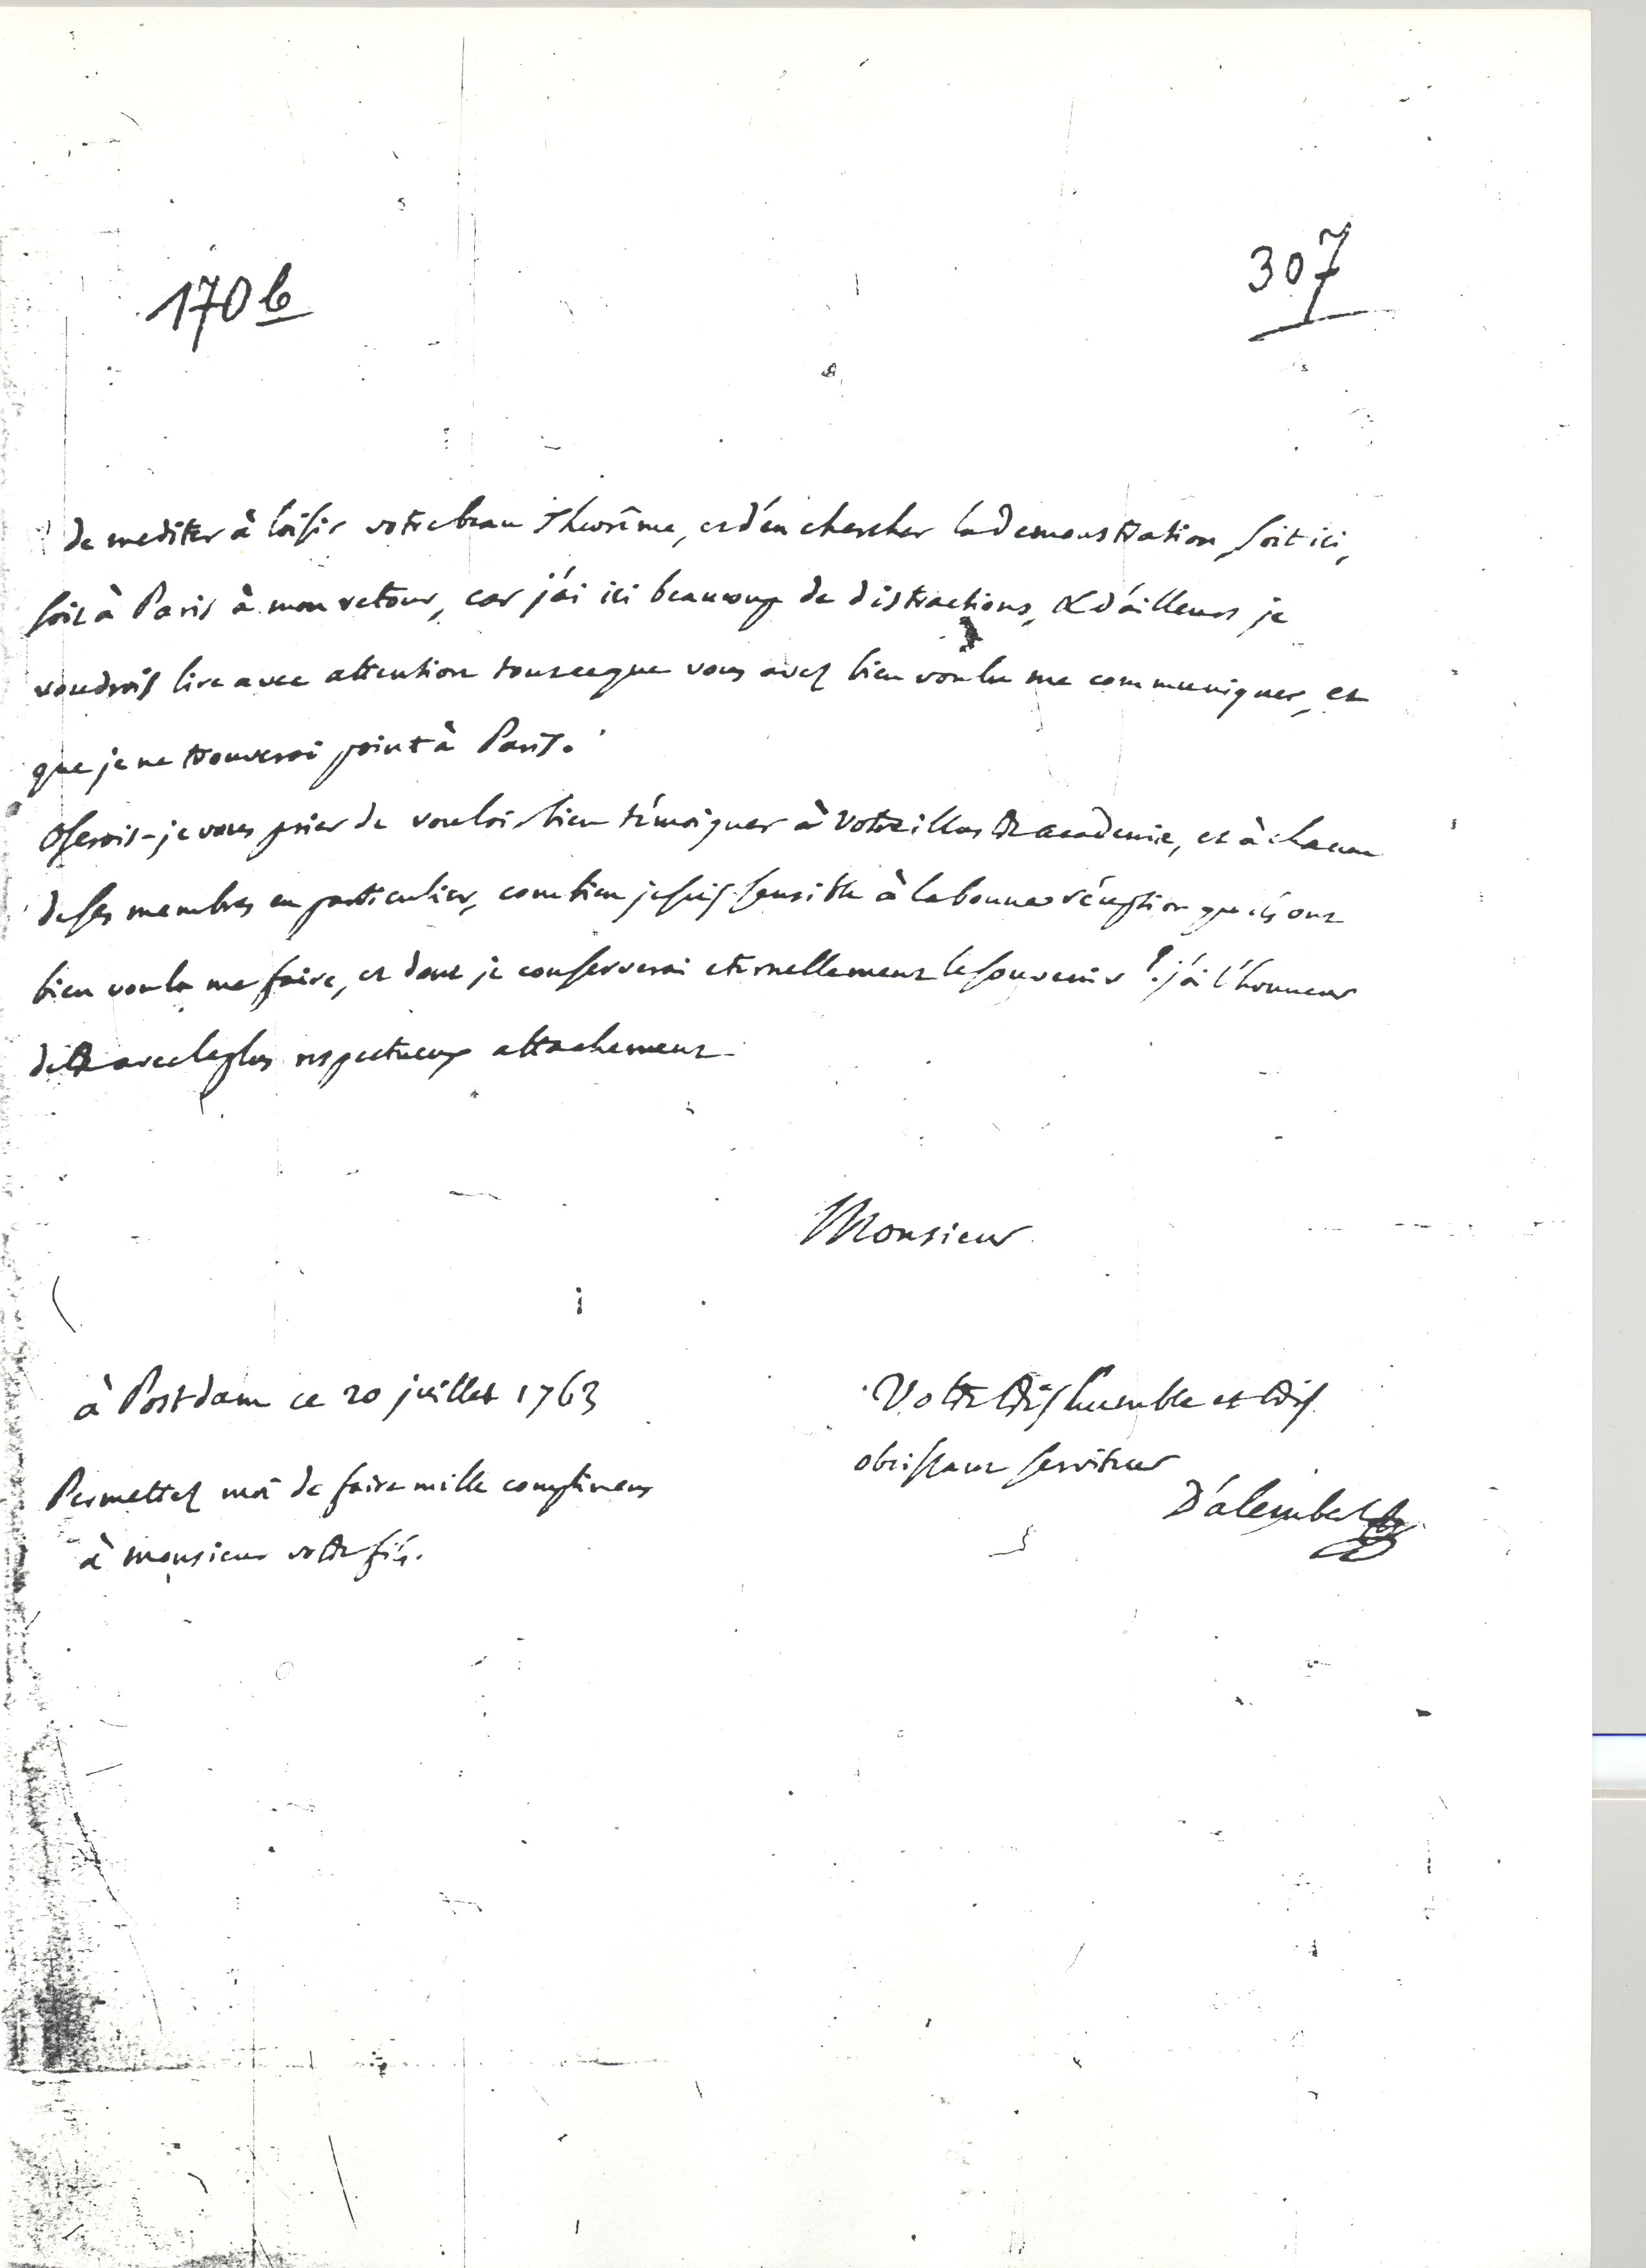 170b
307
de mediter à loisir votre beau Theorême, et d'en chercher la demonstration soit ici,
soit à Paris à mon retour, car j'ai ici beaucoup de distractions, & d'ailleurs je
voudrois lire avec attention tout ce que vous avez bien voulu me communiquer, et
que je ne trouverai point à Paris.
Oserois-je vous prier de vouloir bien témoigner à votre illustre academie, et à chacun
de ses membres en particulier, combien je suis sensible à la bonne réception qu'ils ont
bien voulu me faire, et dont je conserverai eternellement le souvenir ? j'ai l'honneur
d'etre avec le plus respectueux attachement
Monsieur
à Postdam ce 20 juillet 1763
Votre très humble et très
obeissant serviteur
D'alembert
Permettez moi de faire mille complimens
à monsieur votre fils.